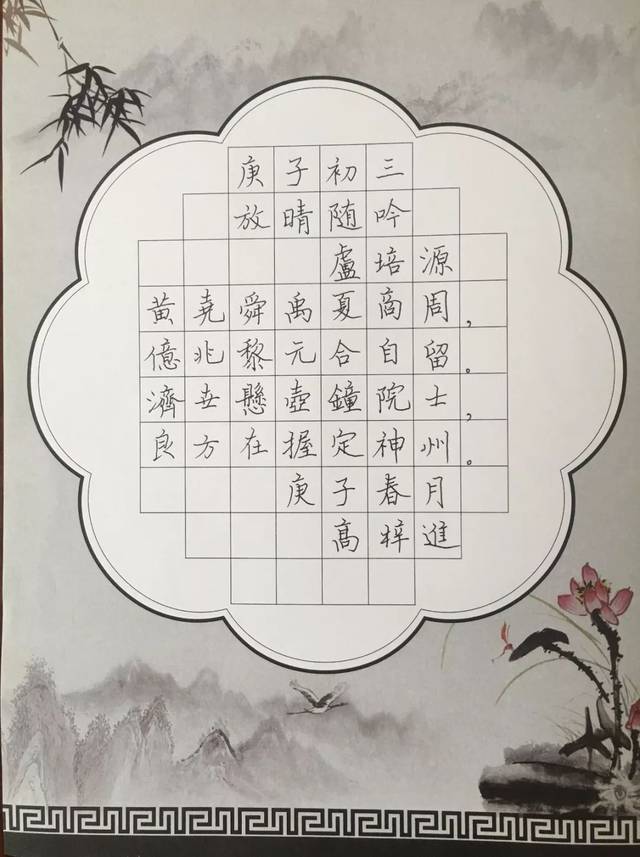 庚子初三
放晴随吟
盧培源
黃堯舜禹夏商周，
億兆黎元合自留。
濟世懸壺鐘院士，
良方在握定神州。
庚子春月
高梓進